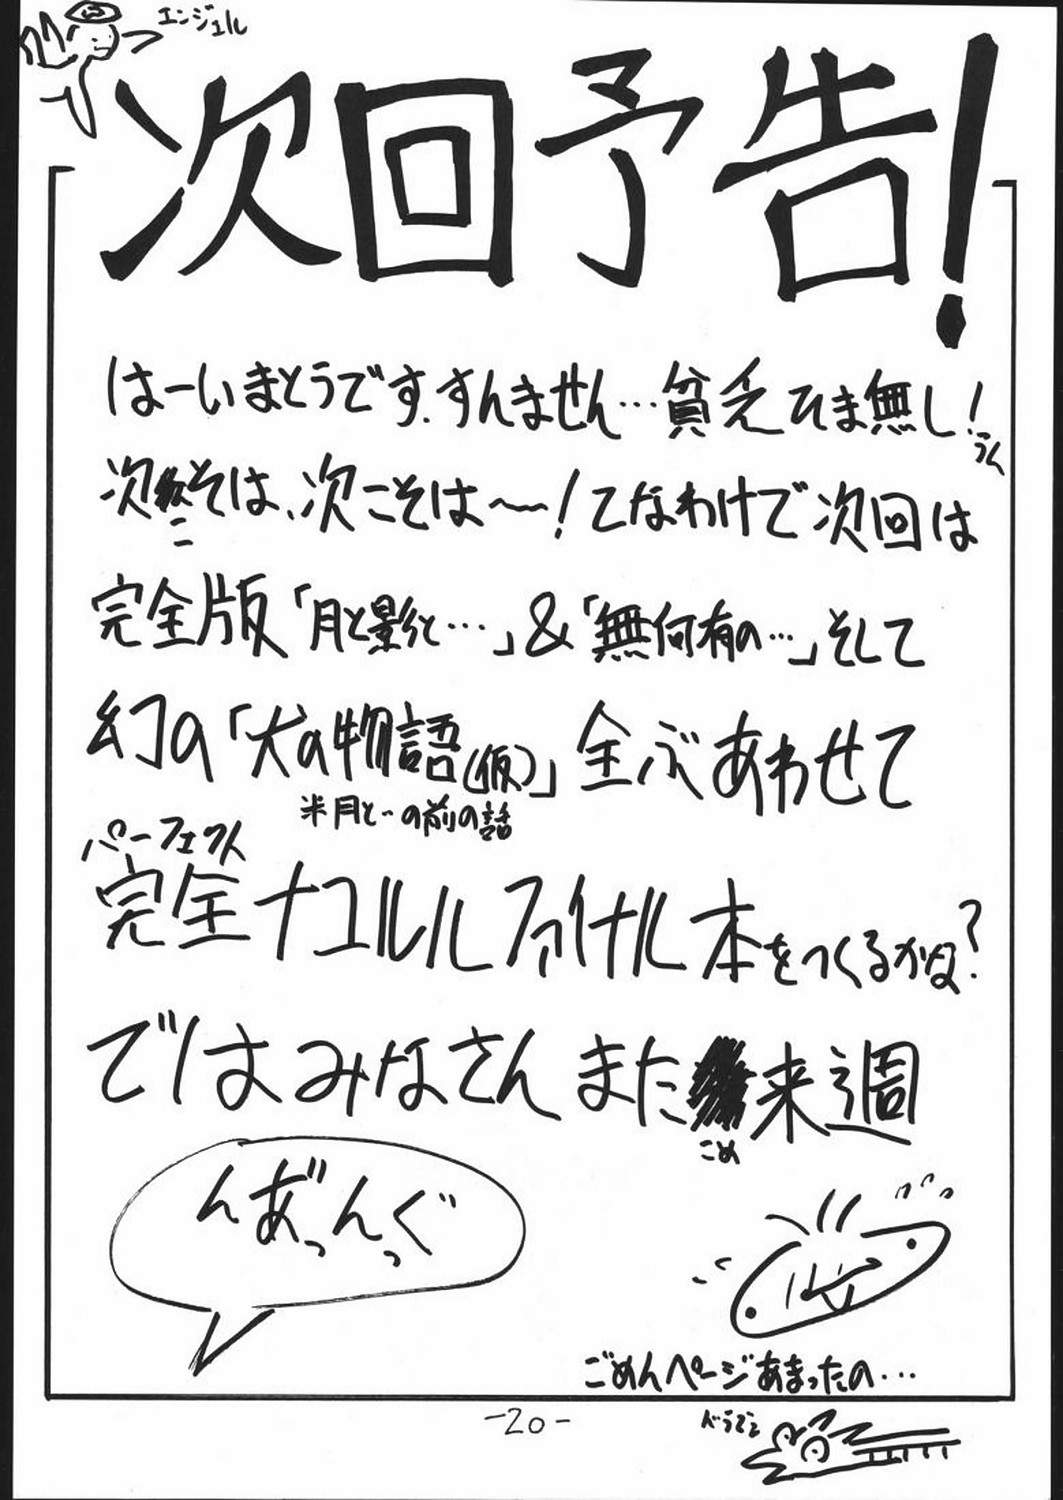 エンジェル
次回予告!
はーいまとうです.すんません…貧乏ひま無し!
うん
次こそは、次こそは〜!てなわけで次回は
完全版「月と影と…」&「無何有の…」そして
幻の「犬の物語(仮)」全ぶあわせて
※月と‥の前の話
パーフェクト
完全ナコルルファイナル本をつくるかな?
ではみなさんまた来週
ごめ
んがっんっぐ
ごめんページあまったの…
-20-